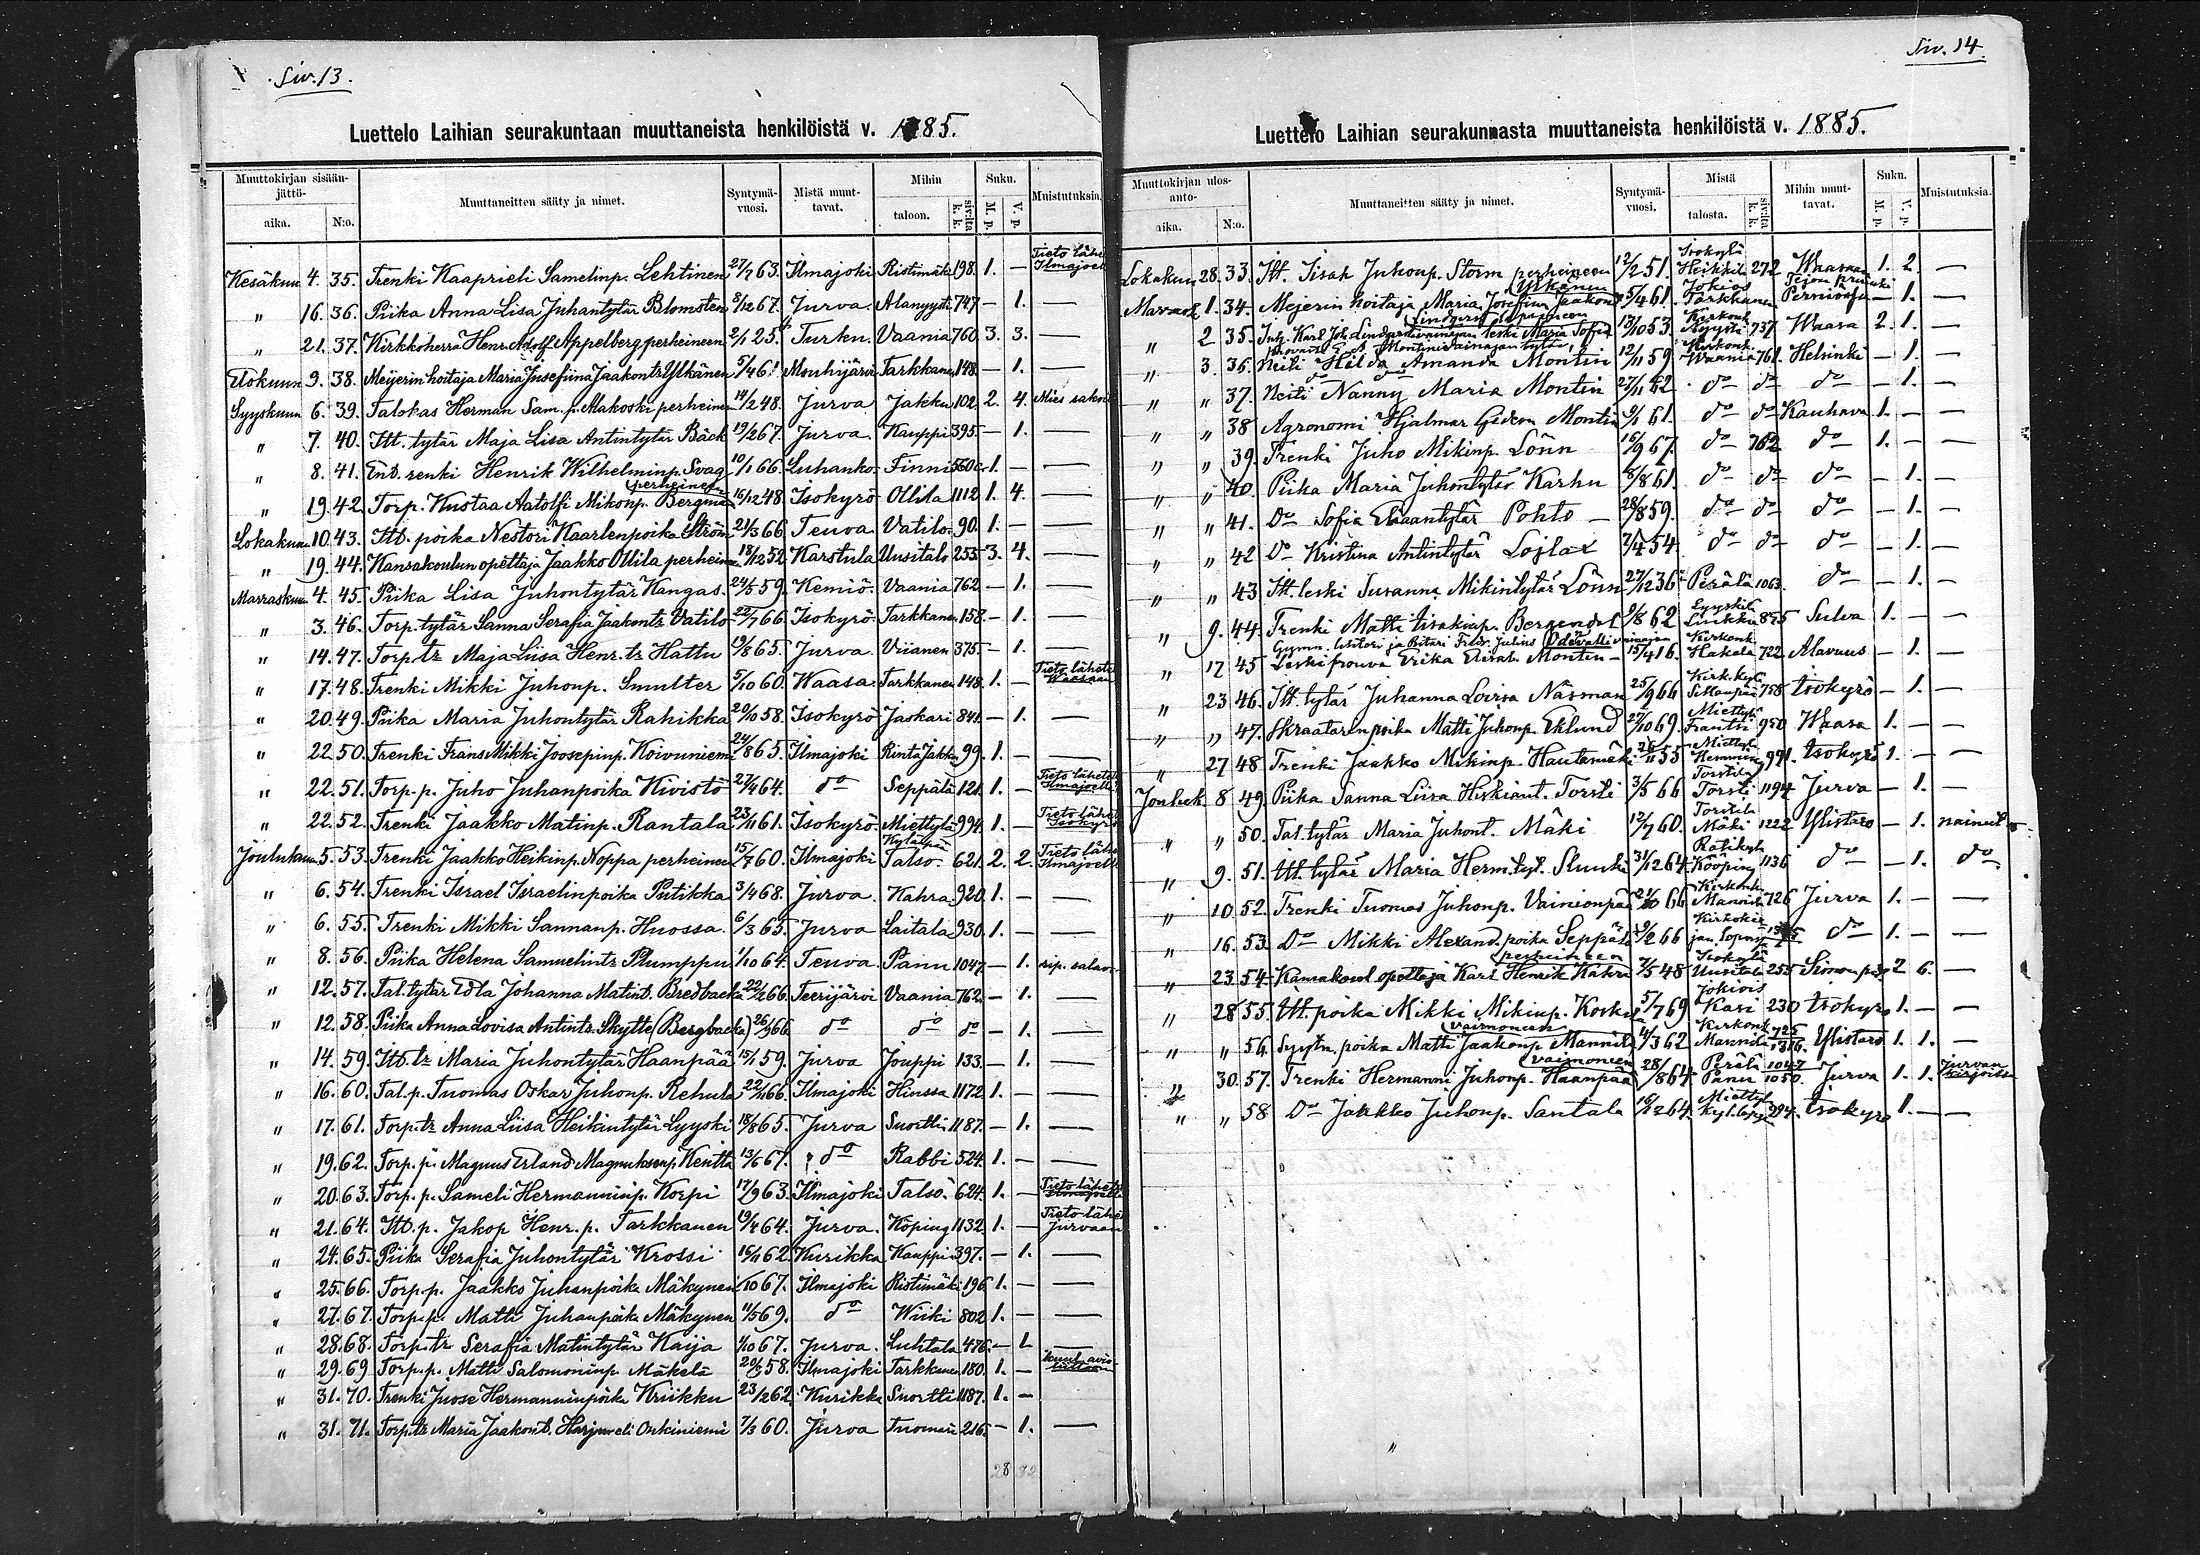 Siv. 13.
Luettelo Laihian seurakuntaan muuttaneista henkilöistä v. 1885.
Muuttokirjan sisään-jättö- aika. N:o. Muuttaneitten sääty ja nimet. Syntymä-vuosi. Mistä muut-tavat. Mihin taloon. k. k. sivulta Suku. M. p. V. p. Muistutuksia.
Kesäkuun 4. 35. Trenki Kaaprieli Samelinp. Lehtinen 27/7 63. Ilmajoki Ristimäki 198. 1. — Tieto lähe Ilmajoelle
" 16. 36. Piika Anna Lisa Juhantytär Blomsten 8/12 67. Jurva. Alanyysti 747 — 1. —
" 21. 37. Kirkkoherra Henr. Adolf Appelberg perheineen 2/1 25. Turku. Vaania 760. 3. 3. —
Elokuun 9. 38. Meijerin hoitaja Maria Josefiina Jaakontr Ylkänen 5/4 61 Mouhijärvi Tarkkanen 148. — 1. —
Syyskuun 6. 39. Talokas Herman Sam. p. Makoski perheineen 14/2 48. Jurva Jakku 102. 2. 4. Mies sakot
" 7. 40. Itt. tytär Maja Lisa Antintytär Bäck 19/2 67. Jurva. Kauppi 395. — 1. —
" 8. 41. Ent. renki Henrik Wilhelminp. Svag 10/1 66. Luhanko. Finni 560 c. 1. — —
" 19. 42. Torp. Kustaa Aatolfi Mikonp. Bergman perheineen 16/12 48 Isokyrö Ollila 1112 1. 4. —
Lokakuun 10. 43. Itt. poika Nestori Kaarlenpoika Ström 21/3 66 Teuva Vatilo. 90. 1. — —
" 19. 44. Kansakoulun opettaja Jaakko Ollila perheineen 18/12 52 Karstula Uusitalo 255. 3. 4. —
Marraskuun 4. 45. Piika Lisa Juhontytär Kangas. 24/5 59. Kemiö. Vaania 762. — 1. —
" 3. 46. Torp. tytär Sanna Serafia Jaakontr Vatilo 22/7 66 Isokyrö. Tarkkanen 158. — 1. —
" 14. 47. Torp. tr Maja Liisa Henr. tr Hattu 19/8 65. Jurva. Viianen 375 — 1. —
" 17. 48. Trenki Mikki Juhonp. Smulter 5/10 60. Waasa. Tarkkanen 148. 1. — Tieto lähete Waasaan
" 20. 49. Piika Maria Juhontytär Rahikka 20/10 58. Isokyrö Jaskari 841. — 1. —
" 22. 50. Trenki Frans Mikki Joosepinp. Koivuniemi 24/8 65. Ilmajoki Rinta Jakku 99. 1. — —
" 22. 51. Torp. p. Juho Juhanpoika Kivistö 27/4 64. do Seppälä 121. 1. — Tieto lähetet Ilmajoelle
" 22. 52. Trenki Jaakko Matinp. Rantala 23/11 61. Isokyrö. Miettylä 994. 1. — Tieto lähet Isokyrö
Joulukuun 5. 53. Trenki Jaakko Heikinp. Noppa perheineen 15/7 60. Ilmajoki Kyläpää Talso. 621. 2. 2. Tieto lähe Ilmajoelle
" 6. 54. Trenki Israel Israelinpoika Putikka 3/4 68. Jurva. Kahra 920. 1. — —
" 6. 55. Trenki Mikki Sannanp. Huossa. 6/3 65. Jurva Laitala 930. 1. — —
" 8. 56. Piika Helena Samuelintr Plumppu 1/10 64. Teuva. Panu 1047. — 1. rip. salass
" 12. 57. Tal. tytär Edla Johanna Matint. Bredbacka 22/2 66. Teerijärvi Vaania 762. — 1. —
" 12. 58. Piika Anna Lovisa Antintr. Skytte (Bergbacka) 26/9 66. do do do — 1. —
" 14. 59. Itt. tr Maria Juhontytär Haanpää 15/1 59. Jurva Jouppi 133. — 1. —
" 16. 60. Tal. p. Tuomas Oskar Juhonp. Rehula 22/11 66. Ilmajoki Hinssa 1172 1. — —
" 17. 61. Torp. tr Anna Liisa Heikintytär Lyyski 18/8 65. Jurva Snortti 1187. — 1. —
" 19. 62. Torp. p. Magnus Erland Magnuksenp. Kentta 13/6 67. do Rabbi 524. 1. — —
" 20. 63. Torp. p. Sameli Hermanninp. Korpi 17/9 63. Ilmajoki Talso. 624. 1. — Tieto lähete Ilmajoelle
" 21. 64. Itt. p. Jakop Henr. p. Tarkkanen 19/4 64. Jurva. Köping 1132. 1. — Tieto lähe Jurvaan
" 24. 65. Piika Serafia Juhontytär Krossi 16/1 62. Kurikka Kauppi 397. — 1. —
" 25. 66. Torp. p. Jaakko Juhanpoika Mäkynen /10 67. Ilmajoki Ristimäki 196. 1. — —
" 27. 67. Torp. p. Matti Juhanpoika Mäkynen 11/5 69. do Wiiki 802 1. — —
" 28. 68. Torp. tr Serafia Matintytär Kaija /10 67. Jurva. Luhtala 476. — 1. —
" 29. 69. Torp. p. Matti Salomoninp. Mäkelä 20/5 58. Ilmajoki Tarkkanen 180. 1. —
" 31. 70. Trenki Juose Hermanninpoika Kriikku 23/2 62. Kurikka Snortti 1187. 1. —
" 31. 71. Torp. tr Maria Jaakont. Harju eli Onkiniemi 7/3 60. Jurva Tuomari 216. — 1. —
28 32
Siv. 14.
Luettelo Laihian seurakunnasta muuttaneista henkilöistä v. 1885.
Muuttokirjan ulos-anto- aika. N:o. Muuttaneitten sääty ja nimet. Syntymä-vuosi. Mistä talosta. k. k. sivulta Mihin muut-tavat. Suku. M. p. V. p. Muistutuksia.
Lokakuu 28. 33. Itt. Iisak Juhonp. Storm perheineen 12/2 51. Isokylä Heikkilä 272 Waasaan 1. 2. —
Marrask 1. 34. Mejerin hoitaja Maria Josefiina Jaakont Ylkänen 5/4 61. Jokios Tarkkanen Perniö — 1. —
" 2 35. Karl Joh. Lindqvist leski Maria Sofia 13/10 53. Kirkonk Kyysti 737 Waasa 2. 1. —
" 3. 36. Neiti Hilda Amanda Montin 12/11 59 Kirkonk. Waania 761 Helsinki — 1. —
" " 37. Neiti Nanny Maria Montin 27/11 62 do do do — 1. —
" " 38 Agronomi Hjalmar Gideon Montin 9/1 61 do do Kauhava 1. — —
" " 39. Trenki Juho Mikinp. Lönn 16/9 67. do 762 do 1. — —
" " 40. Piika Maria Juhontytär Karhu 8/8 61. do do do — 1. —
" " 41. Do Sofia Eliaantytär Pohto — 28/8 59. do do do — 1. —
" " 42 Do Kristina Antintytär Lojlax 7/4 54 do do do — 1. —
" " 43 Itt. leski Susanna Mikintytär Lönn 27/12 36 Perälä 1063. do — 1. —
" 9. 44. Trenki Matti Iisakinp. Bergendol 9/8 62 Lyyski Liukku 875 Sulva 1. — —
" 17 45 Gymn. lehtori ja Ritari Fredr. Julius Odevall vaimojan Leskifrouva Erika Elisab. Montin — 15/4 16. Kirkonk. Hakala 722 Alavuus — 1. —
" 23 46. Itt. tytär Juhanna Lovisa Näsman 25/9 66 Kirk. kylä 758 Isokyrö — 1. —
" " 47. Skraatarin poika Matti Juhonp. Eklund 27/10 69. Miettylä Frantti 950 Waasa 1. — —
" 27 48 Trenki Jaakko Mikinp. Hautamäki 28/11 55 Miettylä Hemmin 991. Isokyrö 1. — —
Jouluk. 8 49. Piika Sanna Liisa Hiskiant. Torsti 3/5 66 Torstila Torsti 1194 Jurva — 1. —
" " 50. Tal. tytär Maria Juhont. Mäki 12/7 60. Torstila Mäki 1222 Ylistaro — 1. nainut
" 9. 51. Itt. tytär Maria Herm. tyt. Sluuki 31/12 64. Ratikylä Kööping 1136 do — 1. do
" 10 52. Trenki Tuomas Juhonp. Vainionpää 21/10 66 Kirkonk Mannila 726 Jurva 1. — —
" 16. 53. Do Mikki Alexand. poika Seppälä 9/2 66 do 1. — —
" 23. 54. Kansakoul opettaja Karl Henrik Kahra perheineen 7/5 48 Isokylä Uusitalo 255 Simon pit 2 6. —
" 28 55. Itt. poika Mikki Mikinp. Koski 5/7 69 Jokiois Kasi 230 Isokyrö 1. — —
" " 56. Syytn. poika Matti Jaakonp. Mannila vaimoneen 4/3 62 Kirkonk Mannila 725 1316. Ylistaro 1. 1. —
" 30. 57. Trenki Hermanni Juhonp. Haanpää vaimoneen 28/8 64. Perälä Panu 1047 1050. Jurva 1. 1. Jurvan kirjoissa
" " 58 Do Jaakko Juhonp. Santala 16/12 64. Miettylä 294. Isokyrö 1. — —